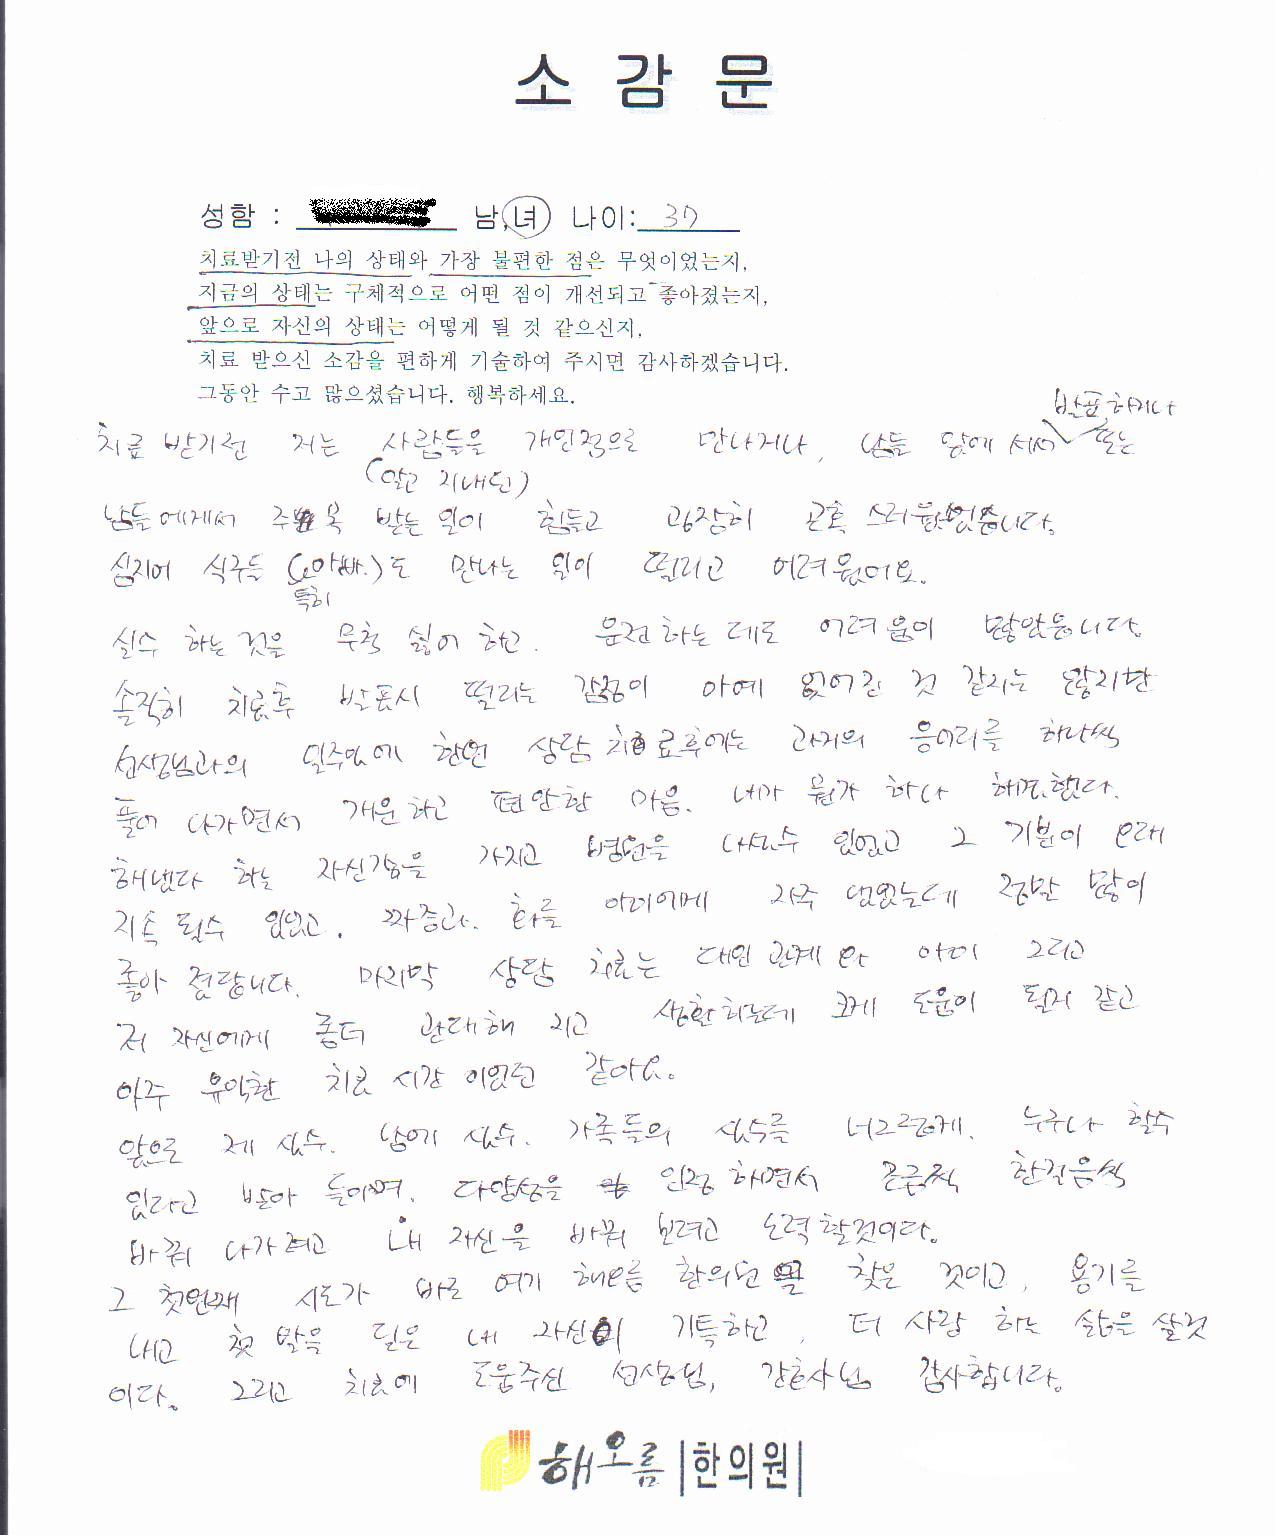 소 감 문
성함 : 남,녀 나이: 37
치료받기전 나의 상태와 가장 불편한 점은 무엇이었는지,
지금의 상태는 구체적으로 어떤 점이 개선되고 좋아졌는지,
앞으로 자신의 상태는 어떻게 될 것 같으신지,
치료 받으신 소감을 편하게 기술하여 주시면 감사하겠습니다.
그동안 수고 많으셨습니다. 행복하세요.
발표하거나
치료 받기전 저는 사람들을 개인적으로 만나거나, 남들 앞에 서서 또는
(알고 지내던)
남들에게서 주목 받는 일이 힘들고 굉장히 곤혹스러웠었습니다.
심지어 식구들 (아빠.)도 만나는 일이 떨리고 어려웠어요.
특히
실수 하는 것을 무척 싫어 하고. 운전하는데도 어려움이 많았습니다.
솔직히 치료후 발표시 떨리는 감정이 아예 없어진 것 같지는 않지만
선생님과의 일주일에 한번 상담 치료후에는 과거의 응어리를 하나씩
풀어 나가면서 개운하고 편안한 마음. 내가 뭔가 하나 해결했다.
해냈다 하는 자신감을 가지고 병원을 나올수 있었고 그 기분이 오래
지속 될수 있었고. 짜증과. 화를 아이에게 자주 냈었는데 정말 많이
좋아 졌답니다. 마지막 상담 치료는 대인관계와 아이 그리고
저 자신에게 좀더 관대해 지고 생활하는데 크게 도움이 될거 같고
아주 유익한 치료 시간 이었던 같아요.
앞으로 제 실수. 남에 실수. 가족들의 실수를 너그럽게. 누구나 할수
있다고 받아 들이며. 다양성을 인정 하면서 조금씩 한걸음씩
바꿔 나가려고 내 자신을 바꿔 보려고 노력할것이다.
그 첫번째 시도가 바로 여기 해오름 한의원을 찾은 것이고, 용기를
내고 첫 발을 딛은 내 자신이 기특하고, 더 사랑 하는 삶을 살것
이다. 그리고 치료에 도움주신 선생님, 간호사님 감사합니다.
해오름 한의원